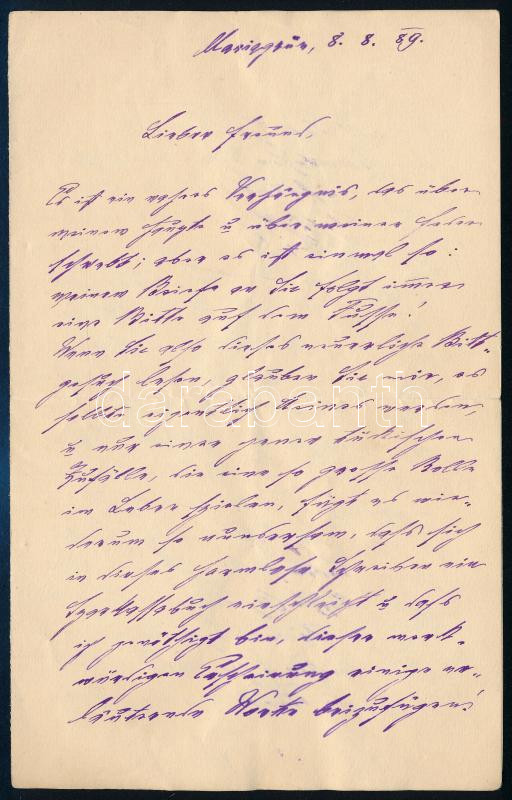 Mariagrün, 8. 8. 89.
Lieber Freund,
Es ist ein wahres Verhängnis, das über
meinem Haupte u über meiner Feder
schwebt; aber es ist einmal so:
meinem Briefe an Sie folgt immer
eine Bitte auf dem Fusse!
Wenn Sie also dieses neuerliche Bitt-
gesuch lesen, glauben Sie mir, es
sollte eigentlich keines werden,
u nur einer jener tückischen
Zufälle, die eine so grosse Rolle
im Leben spielen, fügt es wie-
derum so wundersam, dass sich
in dieses harmlose Schreiben ein
Sparkassabuch einschleicht u dass
ich genöthigt bin, dieser merk-
würdigen Erscheinung einige er-
läuternde Worte beizufügen!
darabanth